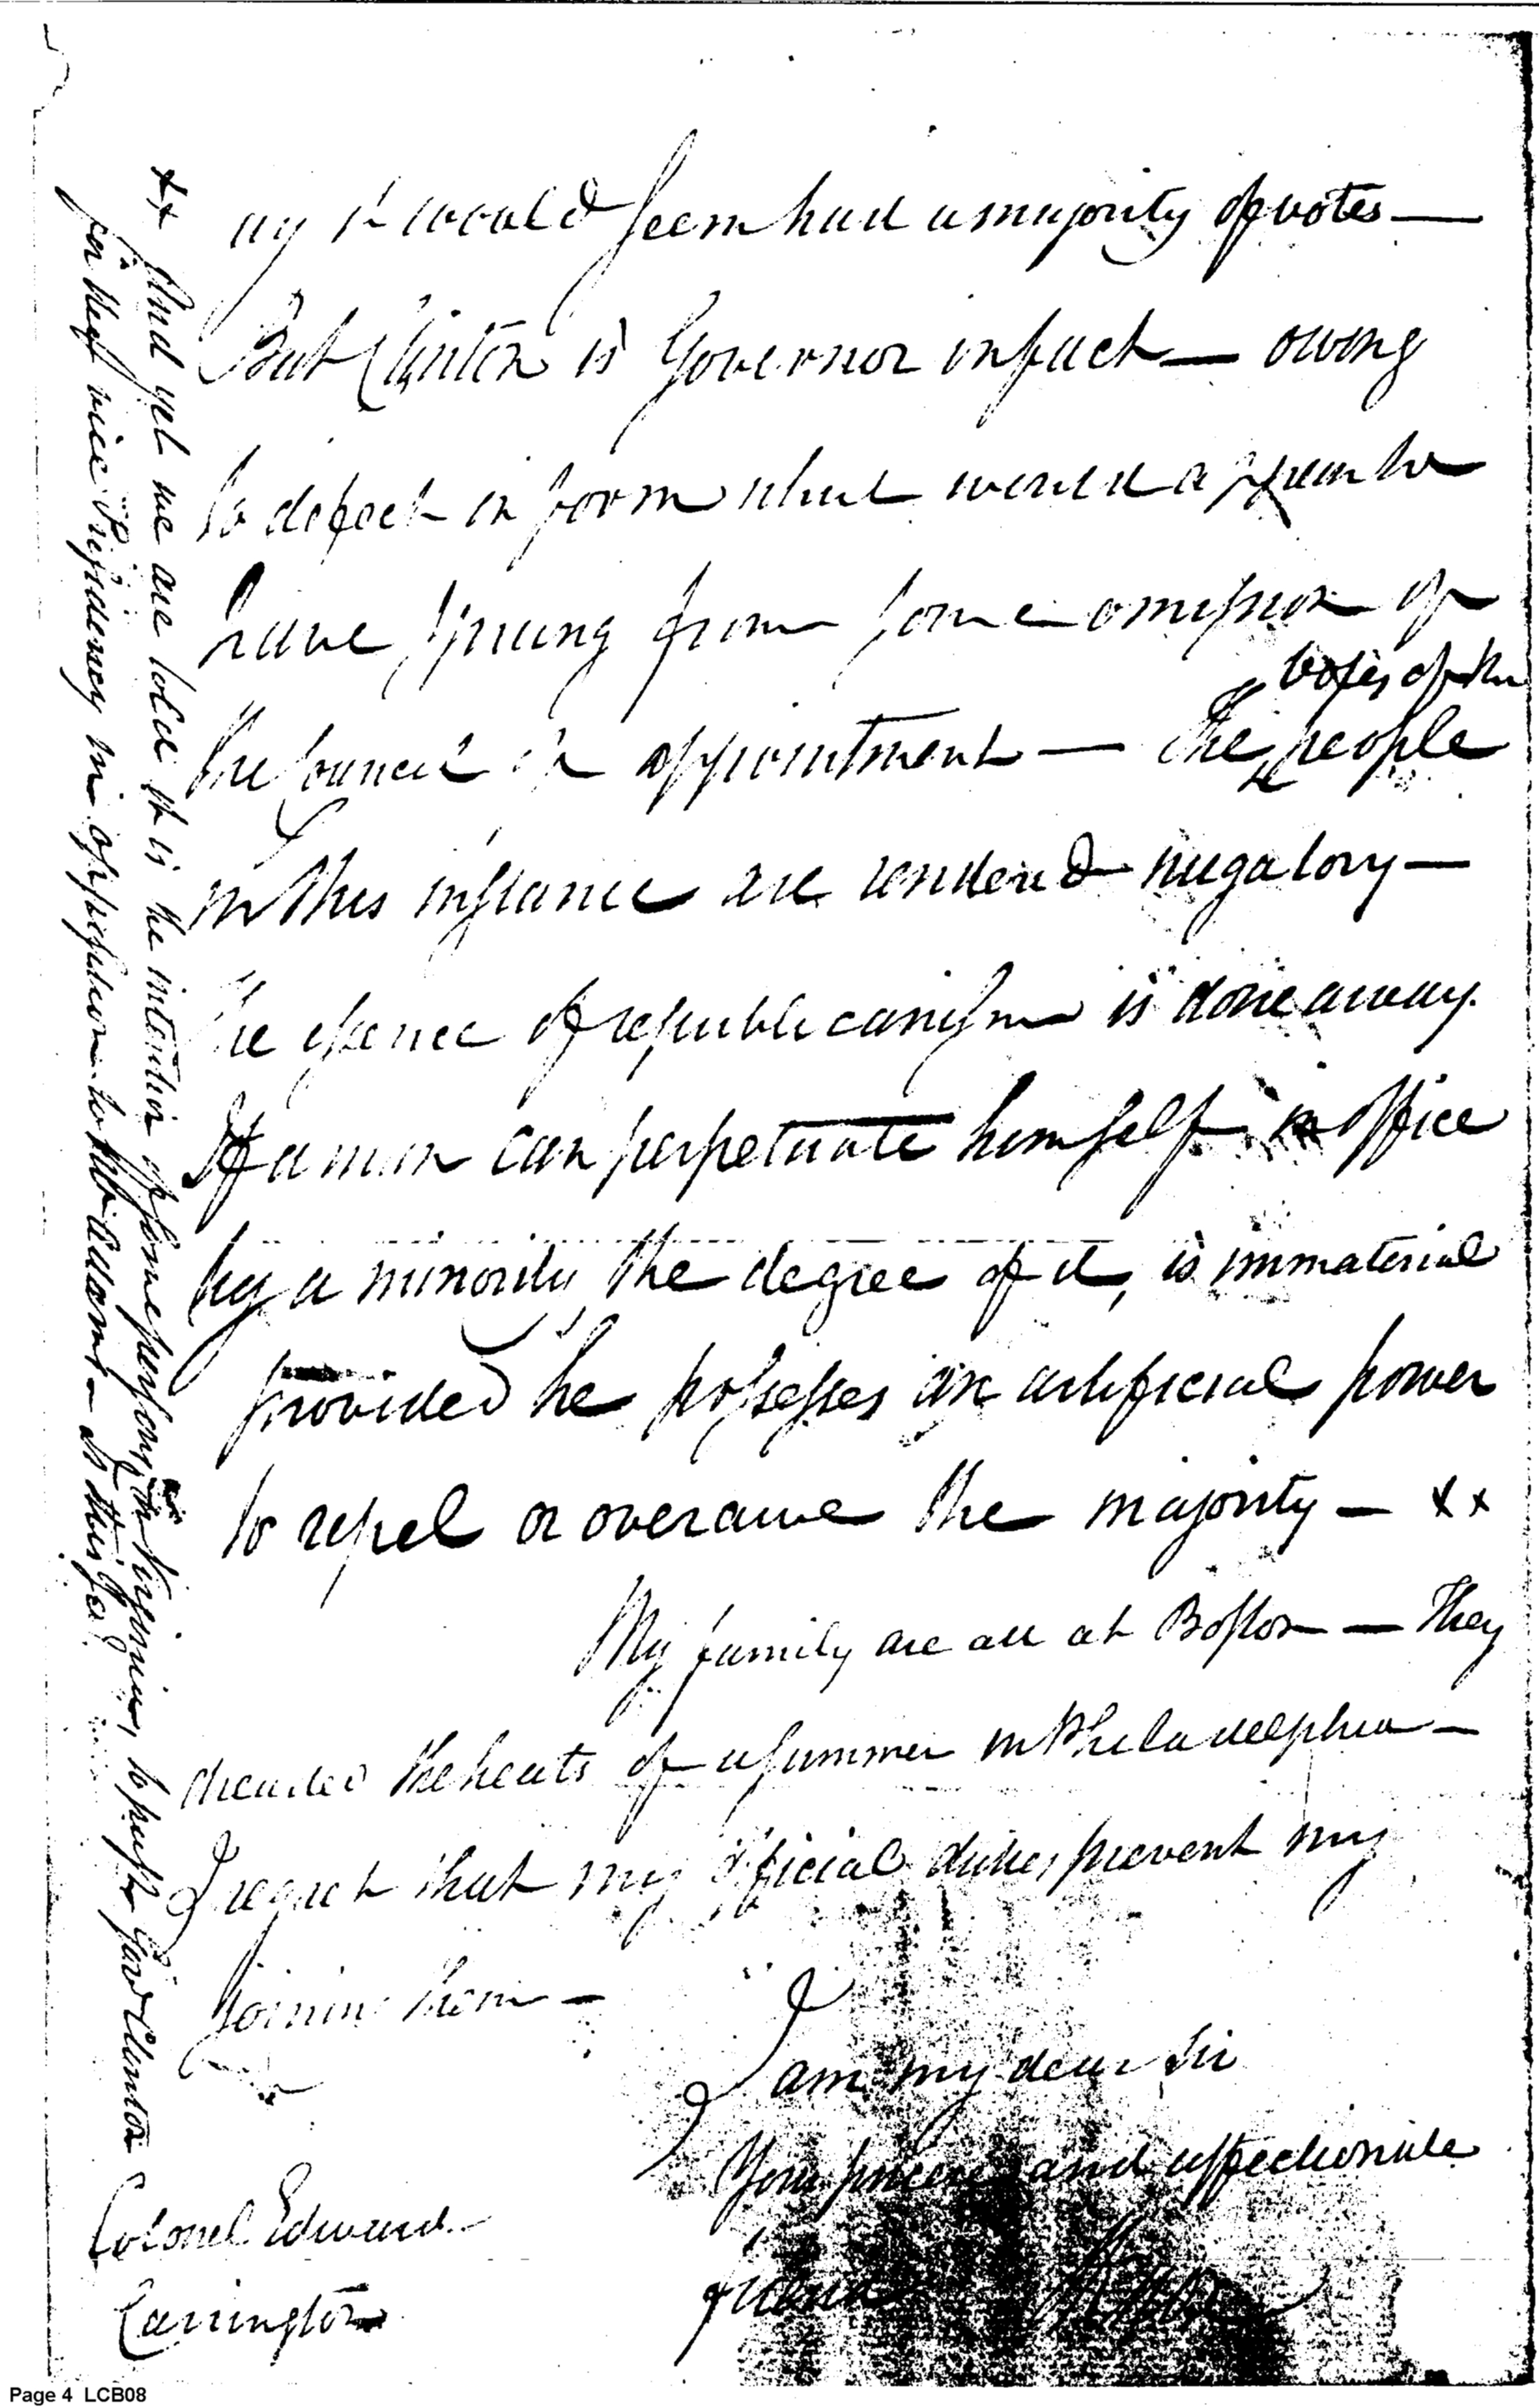 ay it would seem had a majority of votes —
But Clinton is Governor in fact — owing
to defect in form what would appear to
have sprung from some omission of
the council of appointment — The votes of the people
in this instance are rendered nugatory —
The essence of republicanism is done away.
If a man can perpetuate himself in office
by a minority, the degree of it, is immaterial
provided he possesses an artificial power
to repel or overawe the majority — xx
My family are all at Boston — They
dreaded the heats of a summer in Philadelphia —
I regret that my official duties prevent my
joining them —
I am my dear Sir
Your sincere and affectionate
friend
Colonel Edward
Carrington
xx And yet we are told it is the intention of some persons in Virginia, to push Govr Clinton
for next vice Presidency in opposition to Mr Adams — Is this so
Page 4 LCB08